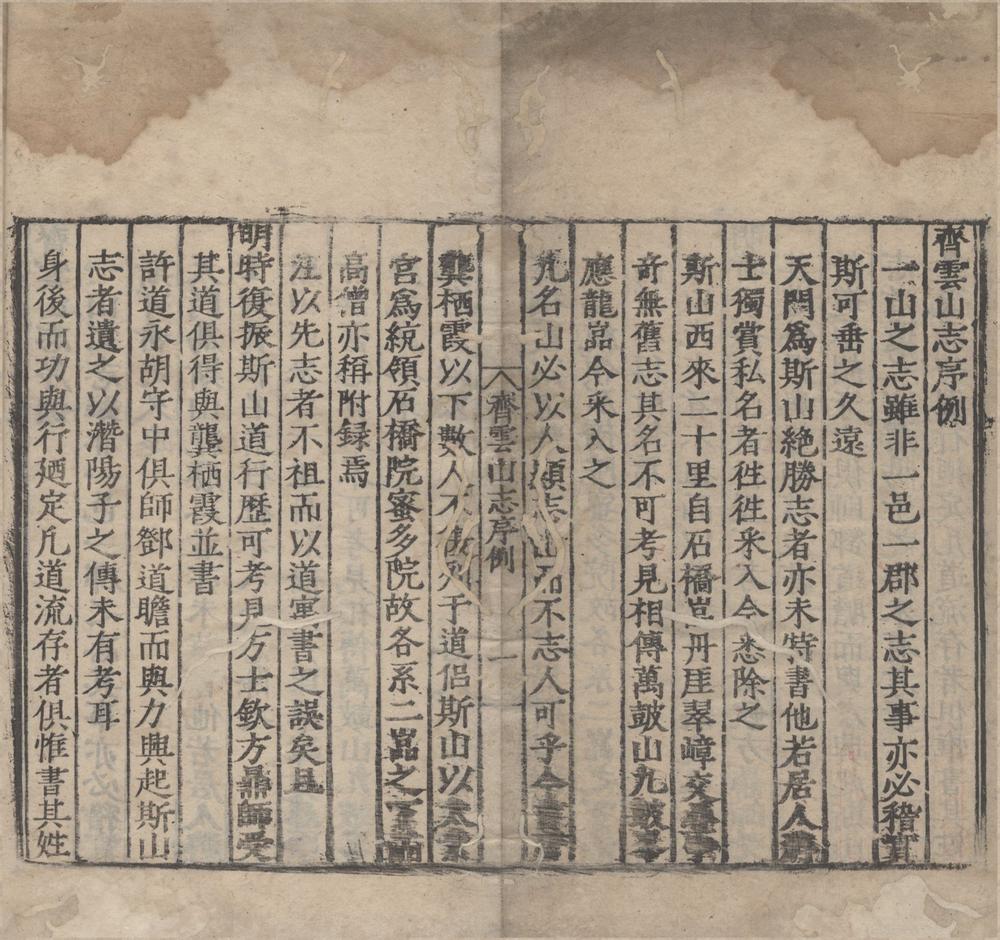 齊雲山志序例
一山之志雖非一邑一郡之志其事亦必稽實
斯可垂之久遠
天開爲斯山絶勝志者亦未特書他若居人
士獨賞私名者徃徃采入今悉除之
斯山西來二十里自石橋岩丹厓翠嶂交
竒無舊志其名不可考見相傳萬皷山九皷
應龍嵓今采入之
凢名山必以人顯志山而不志人可乎今
齊雲山志序例
一
龔栖霞以下數人不列于道侣斯山以太
宫爲統領石橋院蜜多院故各系二嵓之
高僧亦稱附録焉
汪以先志者不祖而以道寓書之誤矣且
明時復振斯山道行歴可考見方士欽方鼎師受
其道俱得與龔栖霞並書
許道永胡守中俱師鄧道瞻而與力興起斯山
志者遺之以潛陽子之傳未有考耳
身後而功與行廼定凢道流存者俱惟書其姓